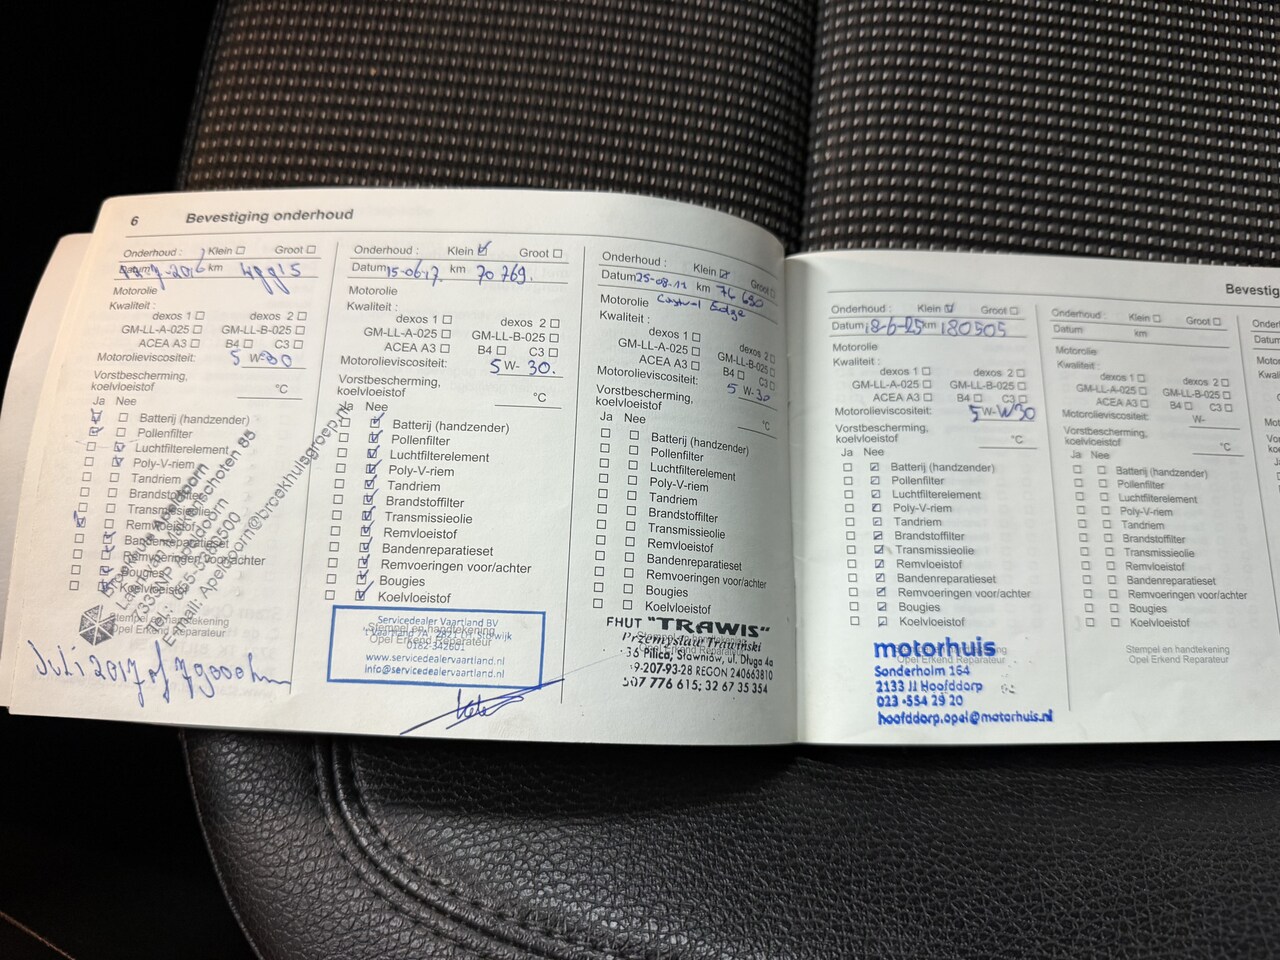 6 Bevestiging onderhoud
Onderhoud : Klein ☐ Groot ☐
Datum 2016 km
Motorolie
Kwaliteit :
dexos 1 ☐ dexos 2 ☐
GM-LL-A-025 ☐ GM-LL-B-025 ☐
ACEA A3 ☐ B4 ☐ C3 ☐
Motorolieviscositeit: 5 W-30
Vorstbescherming,
koelvloeistof °C
Ja Nee
Batterij (handzender)
Pollenfilter
Luchtfilterelement
Poly-V-riem
Tandriem
Brandstoffilter
Transmissieolie
Remvloeistof
Bandenreparatieset
Remvoeringen voor/achter
Bougies
Koelvloeistof
Stempel en handtekening
Opel Erkend Reparateur
Apeldoorn
Juli 2017 of 79000 km
Onderhoud : Klein ☑ Groot ☐
Datum 15-06-17. km 70 769.
Motorolie
Kwaliteit :
dexos 1 ☐ dexos 2 ☐
GM-LL-A-025 ☐ GM-LL-B-025 ☐
ACEA A3 ☐ B4 ☐ C3 ☐
Motorolieviscositeit: 5 W- 30.
Vorstbescherming,
koelvloeistof °C
Ja Nee
☐ ☑ Batterij (handzender)
☐ ☑ Pollenfilter
☐ ☑ Luchtfilterelement
☐ ☑ Poly-V-riem
☐ ☑ Tandriem
☐ ☑ Brandstoffilter
☐ ☑ Transmissieolie
☐ ☑ Remvloeistof
☐ ☑ Bandenreparatieset
☐ ☑ Remvoeringen voor/achter
☐ ☑ Bougies
☐ ☑ Koelvloeistof
Servicedealer Vaartland BV
Stempel en handtekening
Opel Erkend Reparateur
0182-342601
www.servicedealervaartland.nl
info@servicedealervaartland.nl
Onderhoud : Klein ☑ Groot ☐
Datum 25-08-17 km 76 690
Motorolie Castrol Edge
Kwaliteit :
dexos 1 ☐ dexos 2 ☐
GM-LL-A-025 ☐ GM-LL-B-025 ☐
ACEA A3 ☐ B4 ☐ C3 ☐
Motorolieviscositeit: 5 W-30
Vorstbescherming,
koelvloeistof °C
Ja Nee
☐ ☐ Batterij (handzender)
☐ ☐ Pollenfilter
☐ ☐ Luchtfilterelement
☐ ☐ Poly-V-riem
☐ ☐ Tandriem
☐ ☐ Brandstoffilter
☐ ☐ Transmissieolie
☐ ☐ Remvloeistof
☐ ☐ Bandenreparatieset
☐ ☐ Remvoeringen voor/achter
☐ ☐ Bougies
☐ ☐ Koelvloeistof
FHUT "TRAWIS"
Przemysław Trawiński
Pilica, Sławniów, ul. Długa 4a
9-207-93-28 REGON 240663810
507 776 615; 32 67 35 354
Onderhoud : Klein ☑ Groot ☐
Datum 18-6-25 km 180505
Motorolie
Kwaliteit :
dexos 1 ☐ dexos 2 ☐
GM-LL-A-025 ☐ GM-LL-B-025 ☐
ACEA A3 ☐ B4 ☐ C3 ☐
Motorolieviscositeit: 5 W- W30
Vorstbescherming,
koelvloeistof °C
Ja Nee
☐ ☑ Batterij (handzender)
☐ ☑ Pollenfilter
☐ ☑ Luchtfilterelement
☐ ☑ Poly-V-riem
☐ ☑ Tandriem
☐ ☑ Brandstoffilter
☐ ☑ Transmissieolie
☐ ☑ Remvloeistof
☐ ☑ Bandenreparatieset
☐ ☑ Remvoeringen voor/achter
☐ ☑ Bougies
☐ ☑ Koelvloeistof
motorhuis
Stempel en handtekening
Opel Erkend Reparateur
Sonderholm 164
2133 JJ Hoofddorp
023 -554 29 20
hoofddorp.opel@motorhuis.nl
Bevestig
Onderhoud : Klein ☐ Groot ☐
Datum km
Motorolie
Kwaliteit :
dexos 1 ☐ dexos 2 ☐
GM-LL-A-025 ☐ GM-LL-B-025 ☐
ACEA A3 ☐ B4 ☐ C3 ☐
Motorolieviscositeit: W-
Vorstbescherming,
koelvloeistof °C
Ja Nee
☐ ☐ Batterij (handzender)
☐ ☐ Pollenfilter
☐ ☐ Luchtfilterelement
☐ ☐ Poly-V-riem
☐ ☐ Tandriem
☐ ☐ Brandstoffilter
☐ ☐ Transmissieolie
☐ ☐ Remvloeistof
☐ ☐ Bandenreparatieset
☐ ☐ Remvoeringen voor/achter
☐ ☐ Bougies
☐ ☐ Koelvloeistof
Stempel en handtekening
Opel Erkend Reparateur